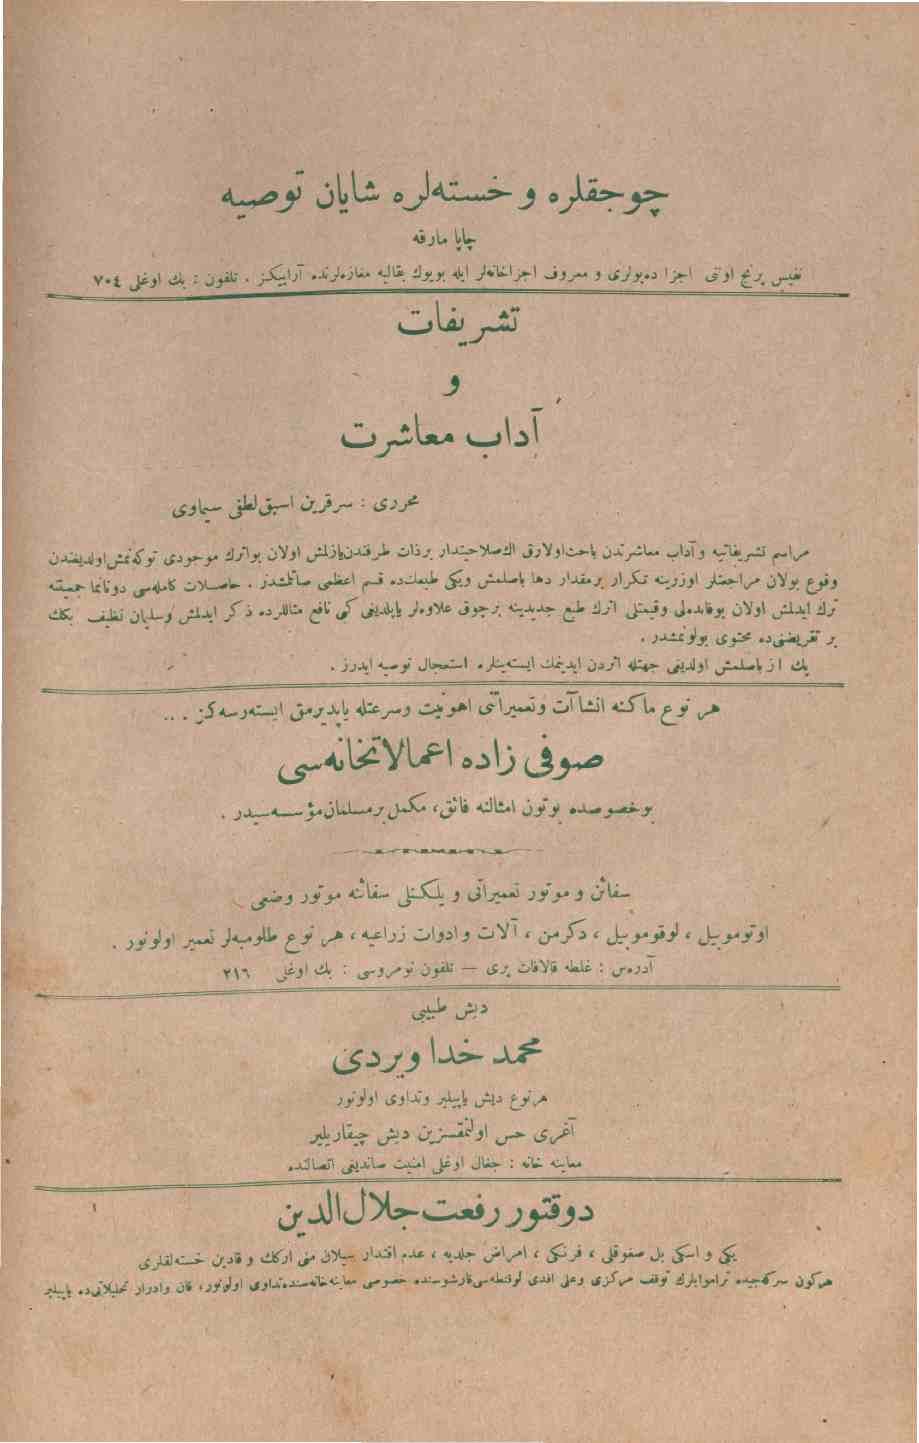 چوجقلره و خسته‌لره شایان توصیه
چاپا مارقه
نفیس پرنج اونی اجزا ده‌پولری و معروف اجزاخانه‌لر ایله بویوك بقالیه مغازه‌لرنده آرایيكز . تلفون : بك اوغلی ٧٠٤
تشریفات
و
آداب معاشرت
محرری : سرقرین اسبق لطفی سیماوی
مراسم تشریفاتیه و آداب معاشرتدن باحث اولارق اك صلاحیتدار برذات طرفندن یازلمش اولان بو اثرك موجودی توكه‌نمش اولدیغندن
وقوع بولان مراجعتلر اوزرینه تكرار برمقدار دها باصلمش و یكی طبعك ده قسم اعظمی صاتلمشدر . حاصلات كامله‌سی دوناما جمعیتنه
ترك ایدلمش اولان بو فایده‌لی وقیمتلی اثرك طبع جدیدینه برچوق علاوه‌لر یاپلدیغی كبی نافع مثاللرده ذكر ایدلمش وسلیمان نظیف بكك
بر تقریضنی ده محتوی بولونمشدر .
پك از باصلمش اولدیغی جهتله اثردن ایدینمك ایسته‌ینلره استعجال توصیه ایدرز .
هر نوع ماكنه انشاآت وتعمیراتنی اهونیت وسرعتله یاپدیرمق ایسته‌رسه‌كز . ..
صوفی زاده اعمالاتخانه‌سی
بوخصوصده بوتون امثالنه فائق، مكمل برمسلمان مؤسسه‌سیدر .
سفائن و موتور تعمیراتی و یلكنلی سفائنه موتور وضعی
اوتوموبیل ، لوقوموبیل ، دكرمن ، آلات و ادوات زراعیه ، هر نوع طلومبه‌لر تعمیر اولونور .
آدره‌س : غلطه قالافات یری — تلفون نومروسی : بك اوغلی ٢١٦
دیش طبیبی
محمد خدا ویردی
هرنوع دیش یاپیلیر وتداوی اولونور
آغری حس اولنمقسزین دیش چیقاریلیر
معاینه خانه : جغال اوغلی امنیت صاندیغی اتصالنده
دوقتور رفعت جلال الدین
یكی و اسكی بل صغوقلغی ، فرنكی ، امراض جلدیه ، عدم اقتدار سیلان منی اركك و قادین خسته‌لقلری
هركون سركه‌جیده تراموایلرك توقف مركزی وعلی افندی لوقنطه‌سی قارشوسنده خصوصی معاینه‌خانه‌سنده تداوی اولونور، قان وادرار تحلیلاتی ده یاپیلیر